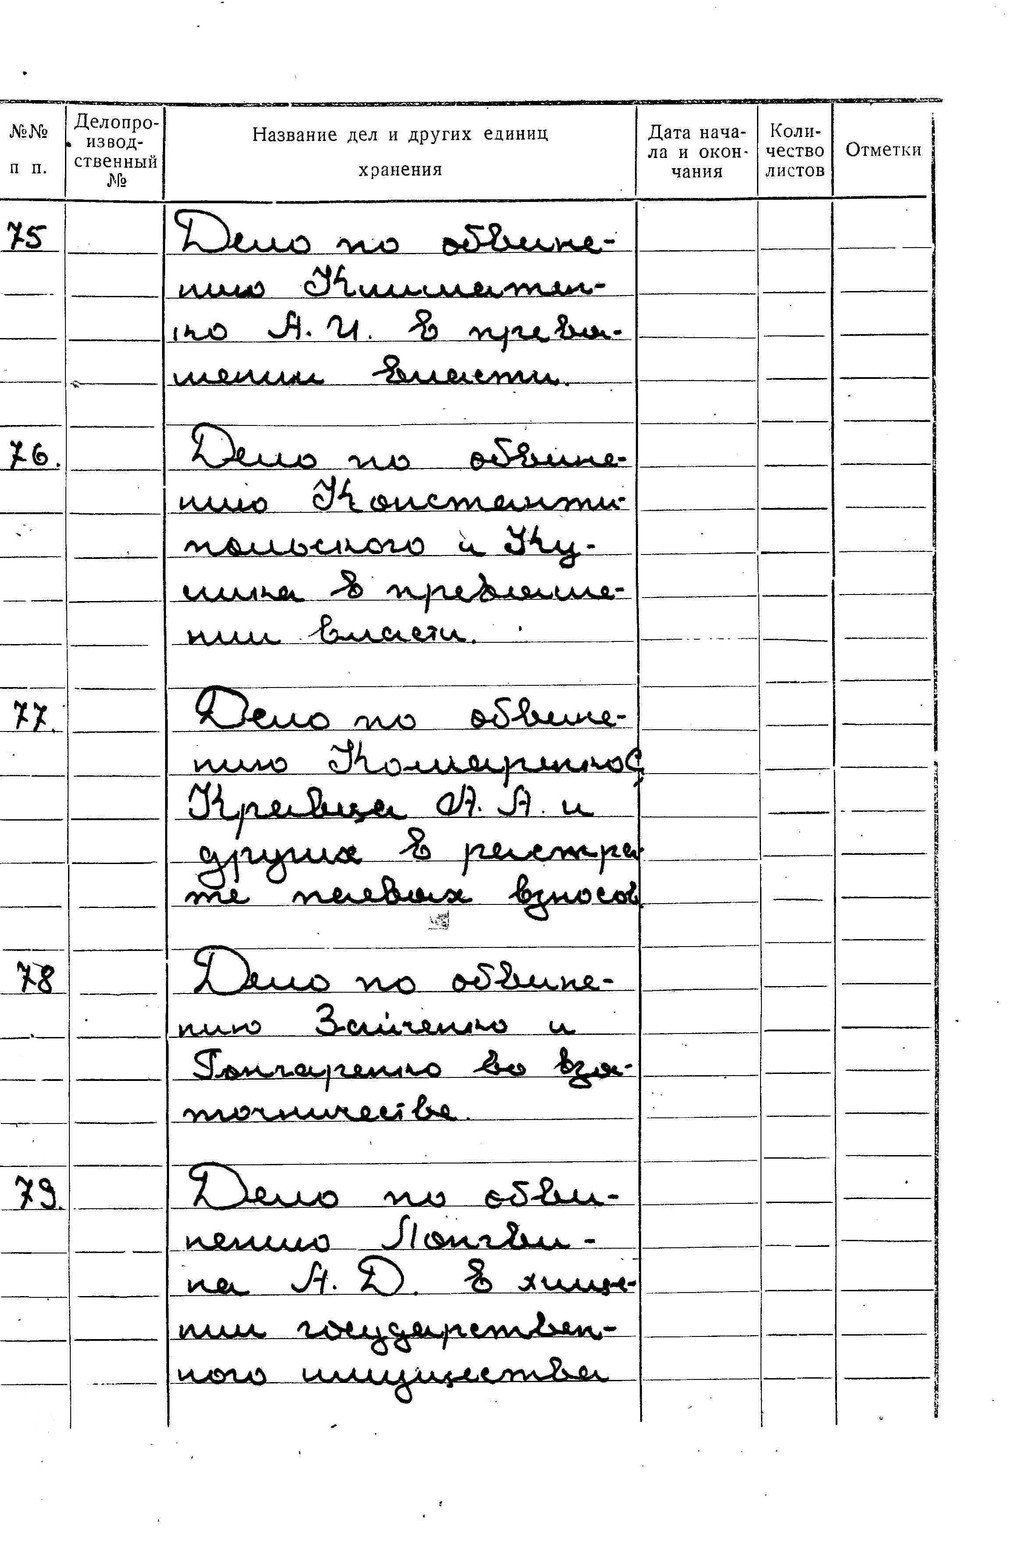 №№ п п.
Делопро-
извод-
ственный
№
Название дел и других единиц
хранения
Дата нача-
ла и окон-
чания
Коли-
чество
листов
Отметки
75 Дело по обвине-
нию Климатен-
ко А. И. в превы-
шении власти.
76. Дело по обвине-
нию Константи-
польского и Ку-
лика в превыше-
нии власти.
77. Дело по обвине-
нию Комаренко С,
Кравца А. А. и
других в растра-
те паевых взносов
78 Дело по обвине-
нию Зайченко и
Гончаренко во взя-
точничестве.
79. Дело по обви-
нению Лонгви-
на А. Д. в хище-
нии государствен-
ного имущества